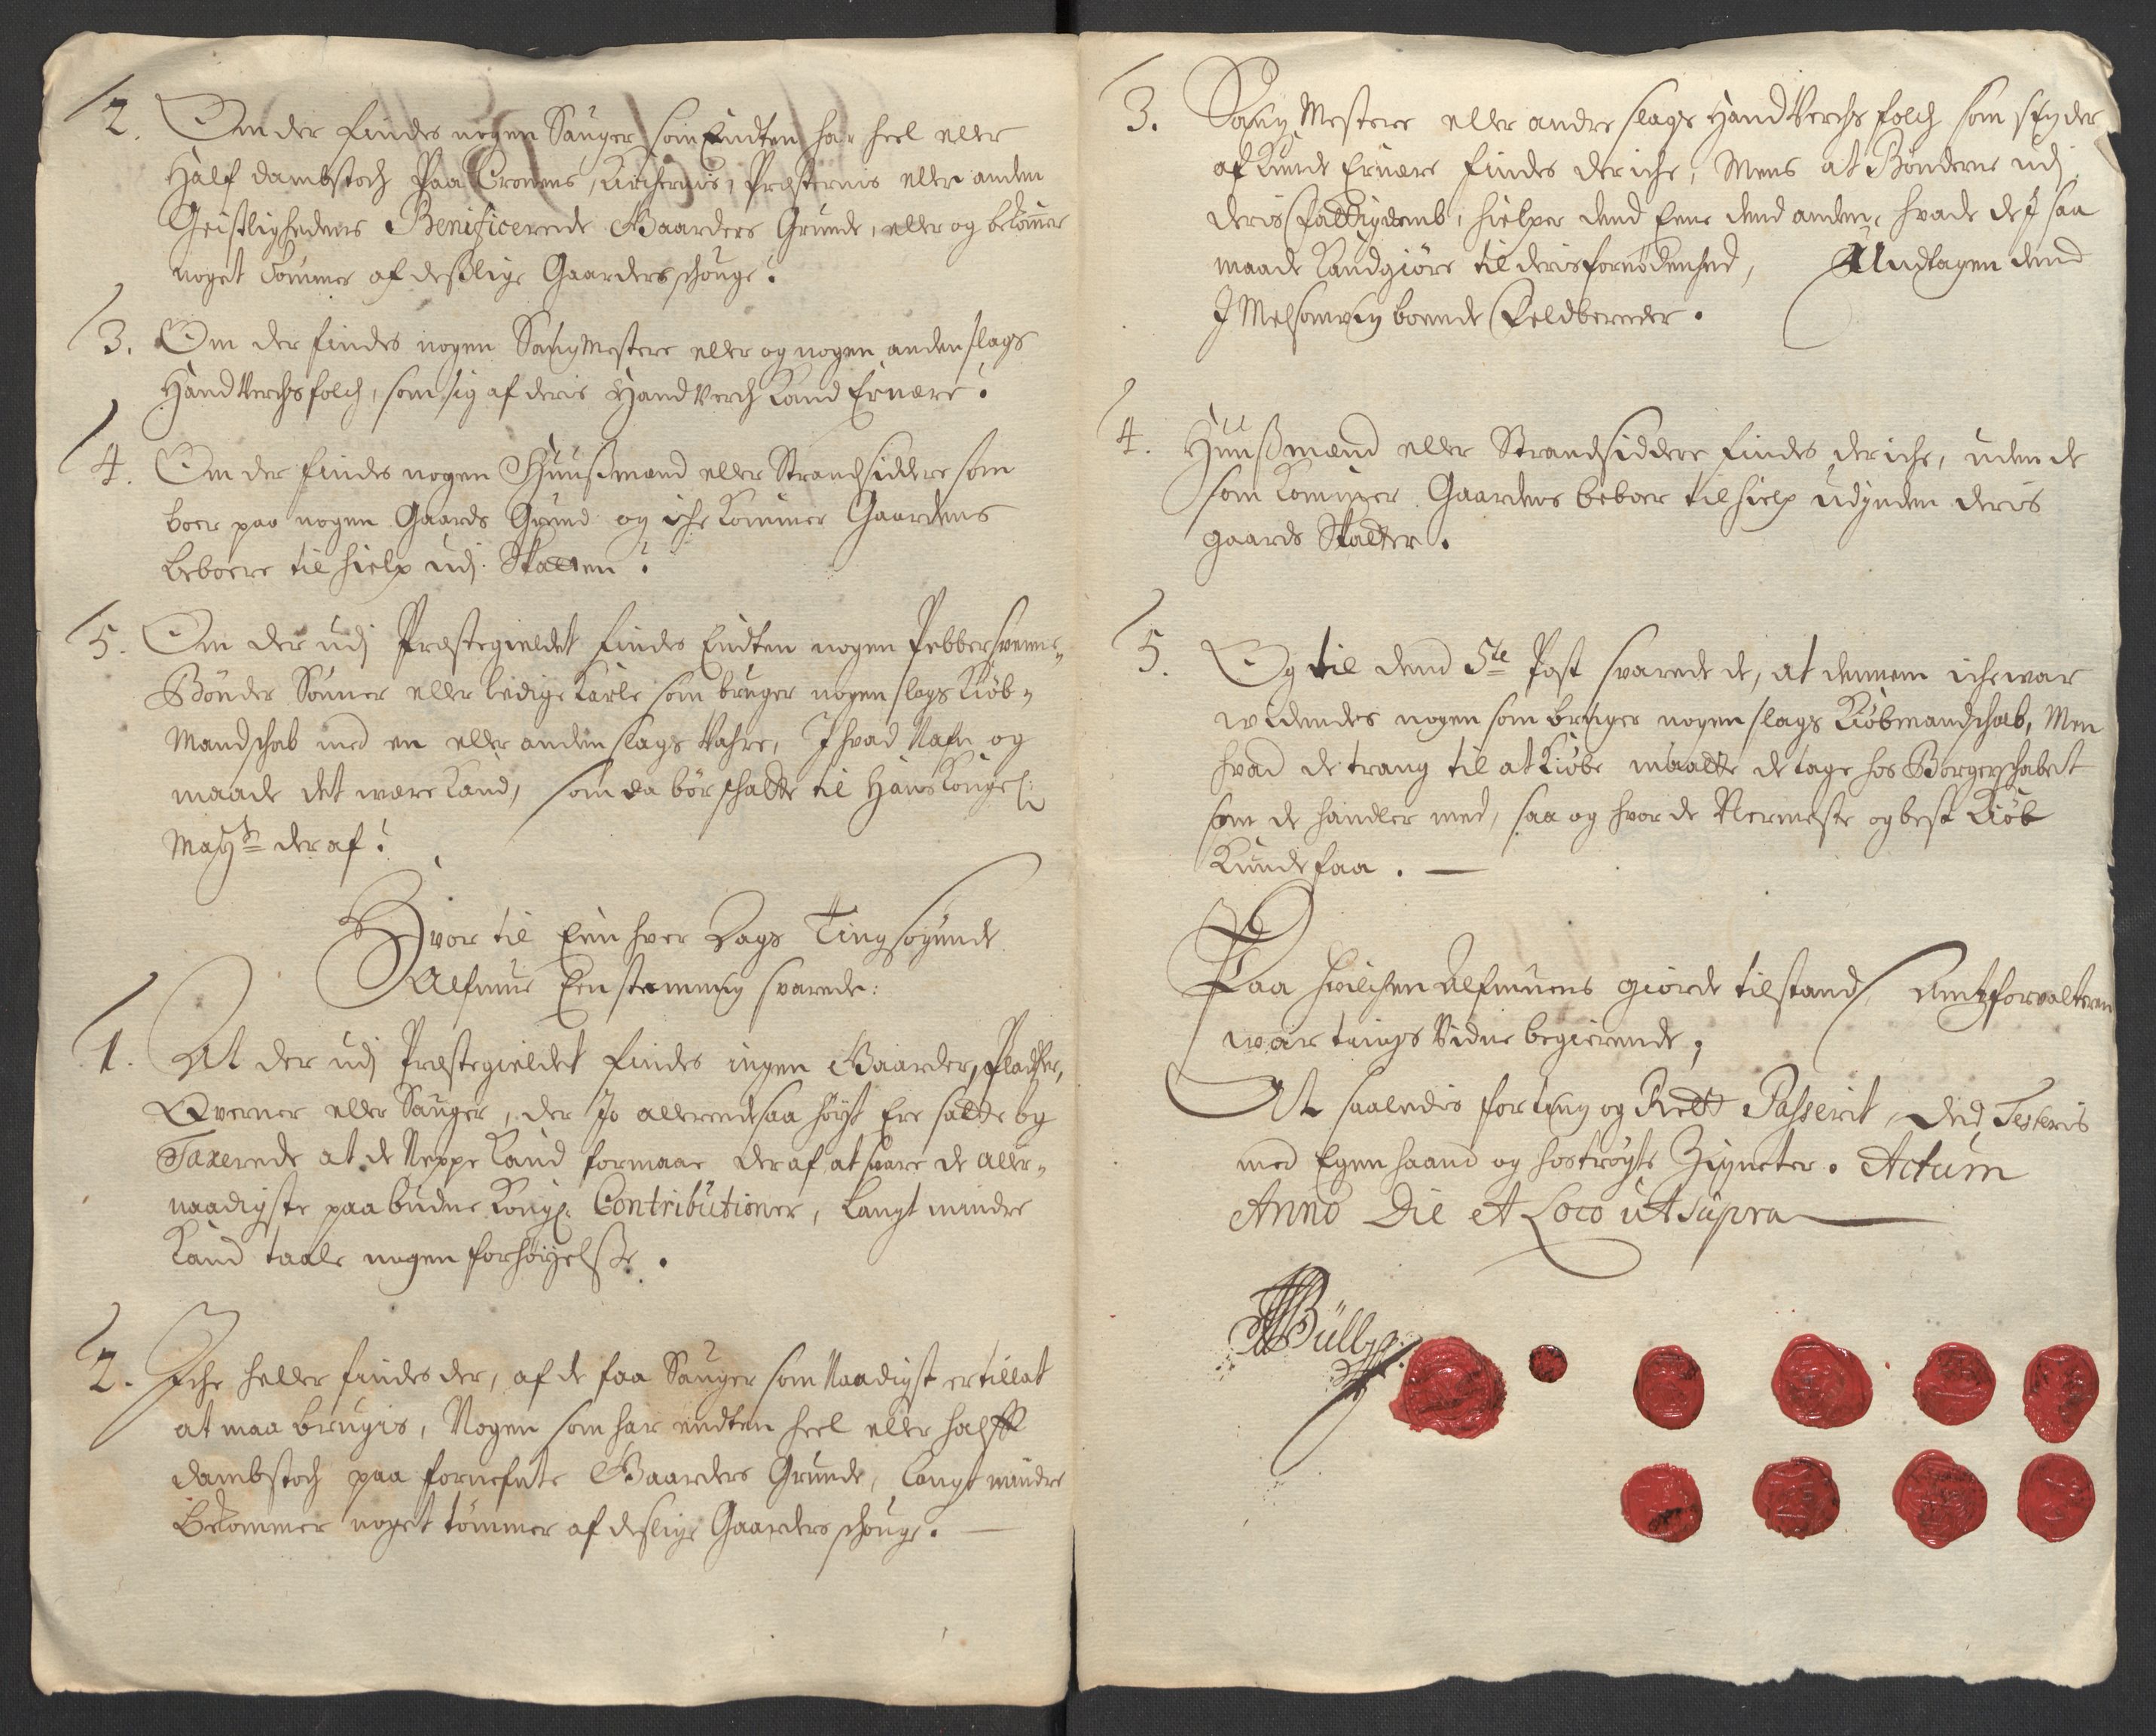 2. Om der findes nogen Sauger som Endten har heel eller
Half dambstoch Paa Cronens, Kirchernis, Præsternis eller anden
Geistlighedens Beneficerede Gaarders Grunde, eller og bekommer
noget Tømmer af deßlige Gaarders schouge?
3. Om der findes nogen Saugmestere eller og nogen anden slags
Handtverchsfolch, som sig af deris Handtverch kand Ernære?
4. Om der findes nogen Huußmænd eller Strandsiddere som
boer paa nogen Gaards Grund og iche kommer Gaardens
beboere til hielp udj Skatten?
5. Om der udj Præstegieldet findes Endten nogen Pebbersvenne
Bønder Sønner eller ledige Karle som bruger nogen slags Kiøb-
Mandschab med en eller anden slags Vahre, I hvad Nafn og
maade det være kand, som da bør schatte til Hans Kongel:
Mayt: deraf?
Hvor til Een hver Dags Tingsøgende
Almue Eenstemmig svarede:
1. At der udj Præstegieldet findes ingen Gaarder, Pladser,
Qverner eller Sauger, der Jo allerede saa høyt Ere satte og
Taxerede at de Neppe kand formaae deraf at svare de aller-
naadigste paabudne Kongl: Contributioner, langt mindre
kand taale nogen forhøyelsße.
2. Iche heller findes der, af de faa Sauger som Naadigst er tillat
at maa brugis, Nogen som har endten heel eller halfft
dambstoch paa fornefnte Gaarders Grunde, langt mindre
bekommer noget tømmer af deslige Gaarders schouge.
3. Saug Mestere eller andre slags Handtverchs folch som sig der
af kunde Ernære findes der iche, Mens at Bønderne udj
deris fattigdomb, hielper dend Eene dend anden, hvade de J saa
maade kand giøre til deris fornødenhed, Undtagen dend
J Melsomvig boende Feldbereder.
4. Huußmænd eller Strandsiddere findes der iche, uden de
som kommer Gaardens beboer til hielp udj deris
gaards Skatter.
5. Og til dend 5te Post svarede de, at dennem iche war
widendes nogen som bruger nogen slags Kiøbmandschab, Men
hvad de trang til at Kiøbe maatte de tage hos Borgerschabet
som de handler med, saa og hvor de Nermeste og best Kiøb
kunde faa.
Paa hvilchen Almuens giorde tilstand, Amtzforvalteren
war tings Vidne begierende,
At saaledis for ting og Rett Passerit, Det Testeris
med Egen haand og hostrøgte Zigneter. Actum
Anno Die et Loco ut supra